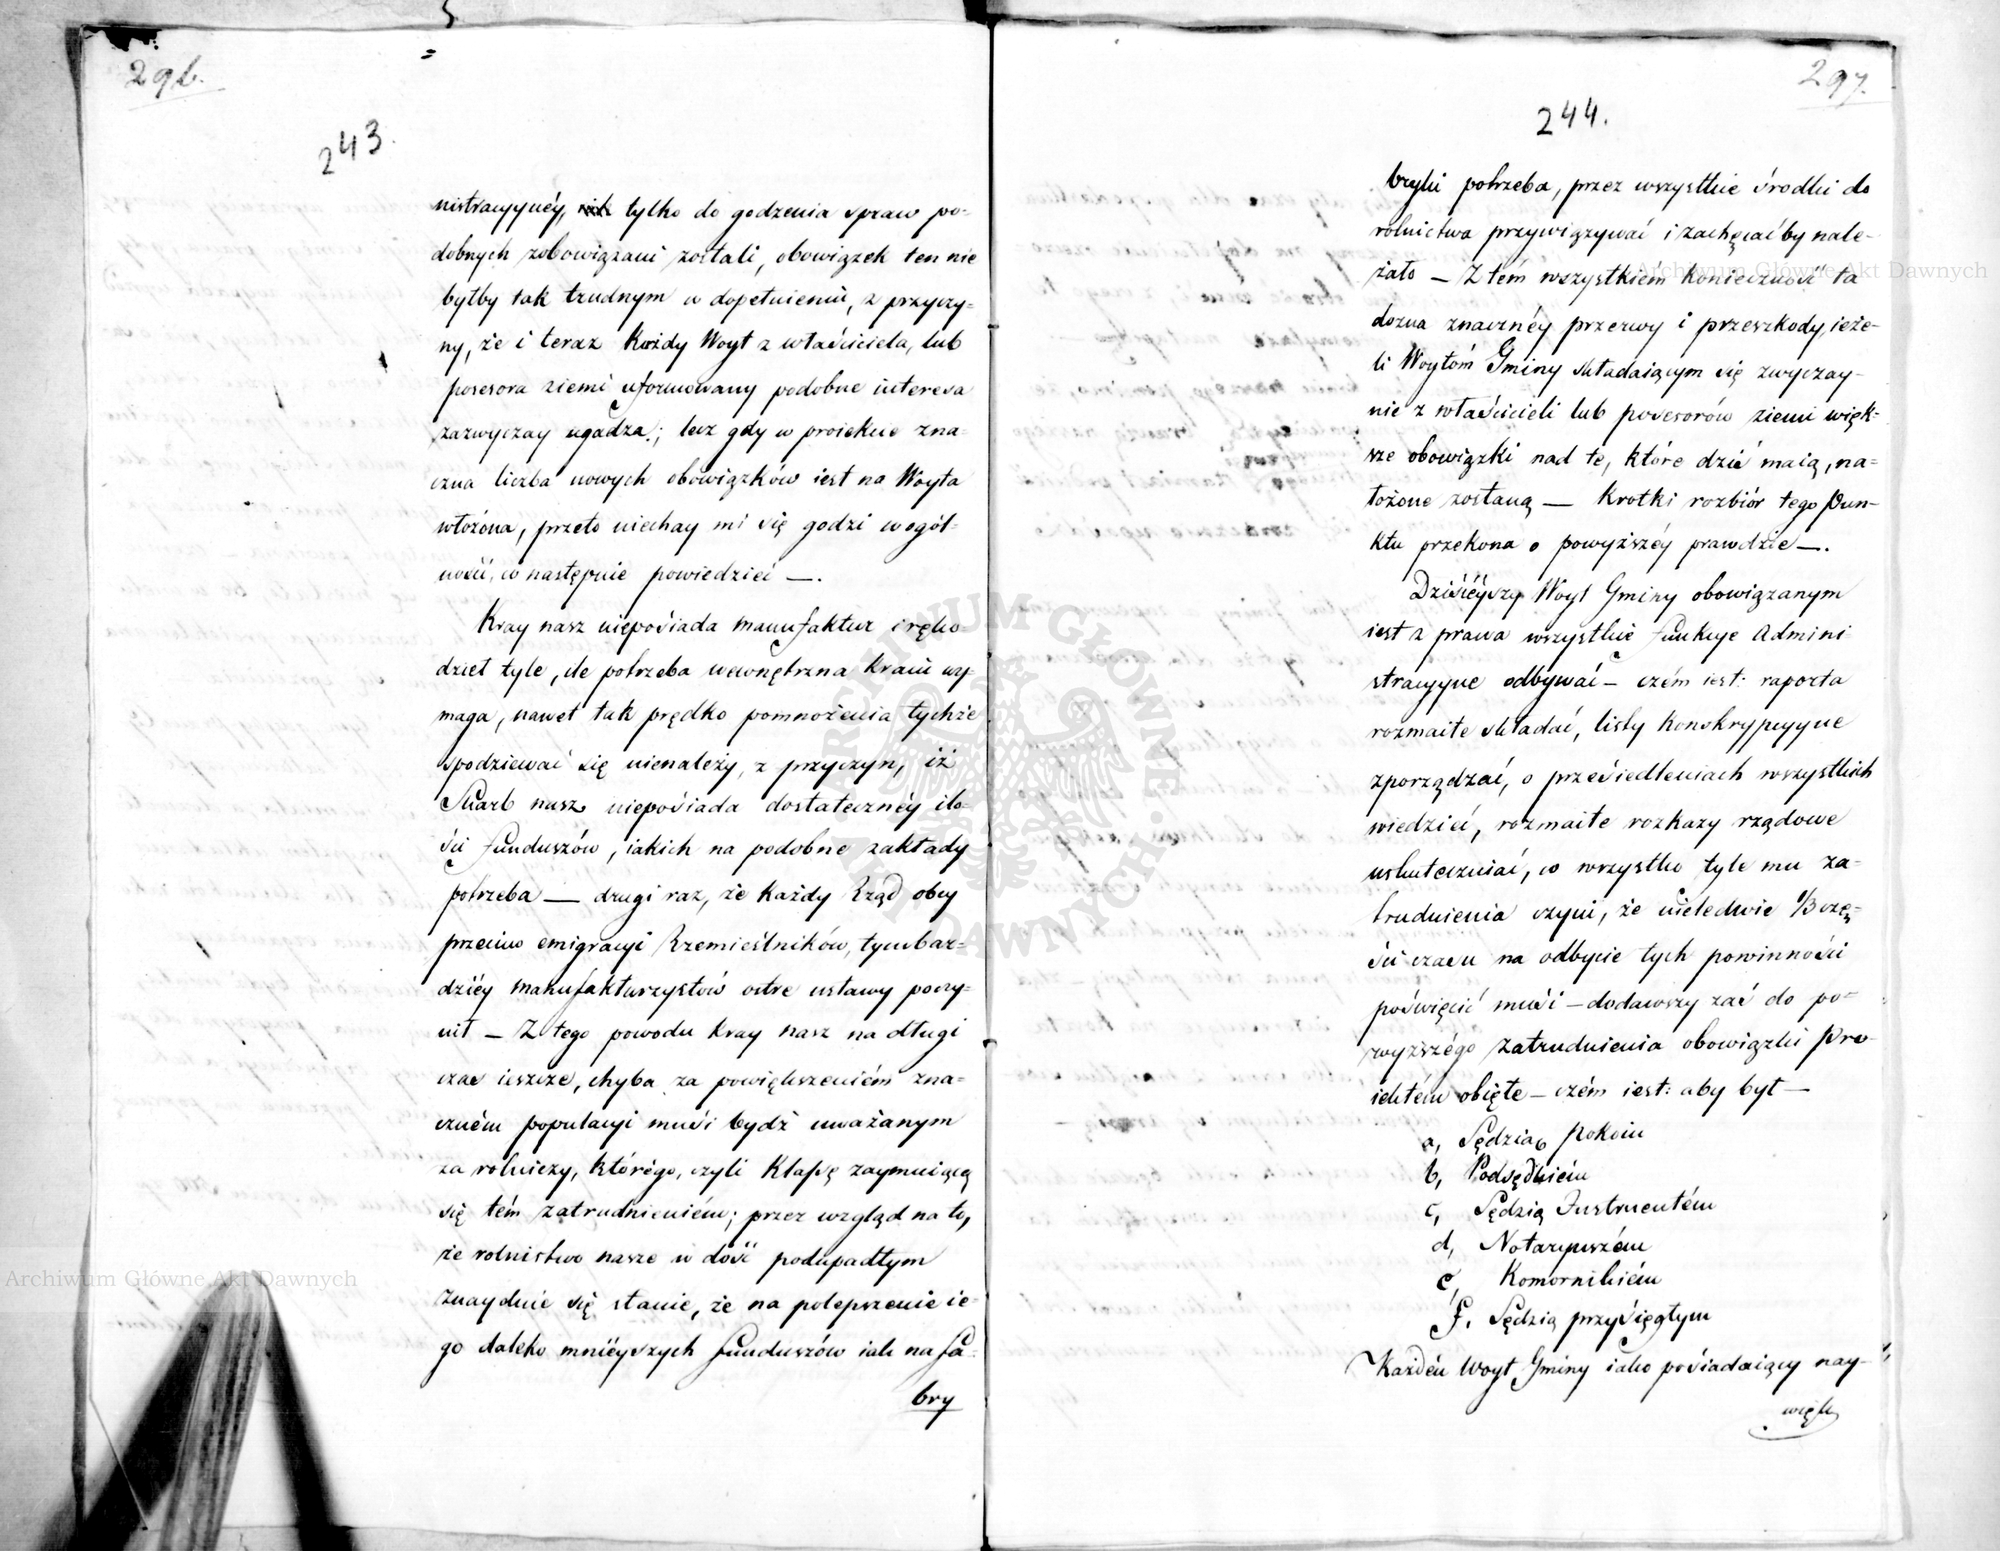 296.
243.
nistracyynéy, tylko do godzenia spraw po-
dobnych zobowiązani zostali, obowiązek ten nie
byłby tak trudnym w dopełnieniu, z przyczy-
ny, że i teraz Każdy Woyt z właściciela, lub
posesora ziemi uformowany podobne interesa
zazwyczay ugadza; lecz gdy w proiekcie zna-
czna liczba nowych obowiązków iest na Woyta
włożona, przeto niechay mi się godzi w ogól-
ności, co następnie powiedzieć —.
Kray nasz nieposiada manufaktur i ręko-
dzieł tyle, ile potrzeba wewnętrzna kraiu wy-
maga, nawet tak prędko pomnożenia tychże
spodziewać się nienależy, z przyczyn, iż
Skarb nasz nieposiada dostatecznéy ilo-
ści funduszów, iakich na podobne zakłady
potrzeba — drugi raz, że każdy Rząd obcy
przeciw emigracyi Rzemieślników, tymbar-
dziéy manufakturzystów ostre ustawy poczy-
nił — Z tego powodu kray nasz na długi
czas ieszcze, chyba za powiększeniém zna-
czném populacyi musi bydź uważanym
za rolniczy, którégo, czyli Klassę zaymuiącą
się tém zatrudnieniém; przez wzgląd na to,
że rolnictwo nasze w dość podupadłym
znayduie się stanie, że na polepszenie ie-
go daleko mnieyszych funduszów iak na fa-
bry
297.
244.
bryki potrzeba, przez wszystkie środki do
rolnictwa przywiązywać i zachęcać by nale-
żało — Z tém wszystkiém konieczność ta
dozna znacznéy przerwy i przeszkody, ieże-
li Woytom Gminy składaiącym się zwyczay-
nie z właścicieli lub posesorów ziemi więk-
sze obowiązki nad te, które dziś maią, na-
łożone zostaną — Krotki rozbiór tego Pun-
ktu przekona o powyższéy prawdzie —.
Dzisiéyszy Woyt Gminy obowiązanym
iest z prawa wszystkie funkcye Admini-
stracyyne odbywać — czém iest: raporta
rozmaite składać, listy konskrypcyyne
zporządzać, o przesiedleniach wszystkich
wiedzieć, rozmaite rozkazy rządowe
uskuteczniać, co wszystko tyle mu za-
trudnienia czyni, że nieledwie 1/3 czę-
ści czasu na odbycie tych powinności
poświęcić musi — dodawszy zaś do po-
wyższégo zatrudnienia obowiązki Pro-
iektém obięte — czém iest: aby był —
a, Sędzią Pokoiu
b, Podsędkiém
c, Sędzią Instruentém
d, Notaryuszém
e, Komornikiém
f. Sędzią przysięgłym
Każdén Woyt Gminy iako posiadaiący nay-
więk
Archiwum Główne Akt Dawnych
Archiwum Główne Akt Dawnych
ARCHIWUM GŁÓWNE AKT DAWNYCH